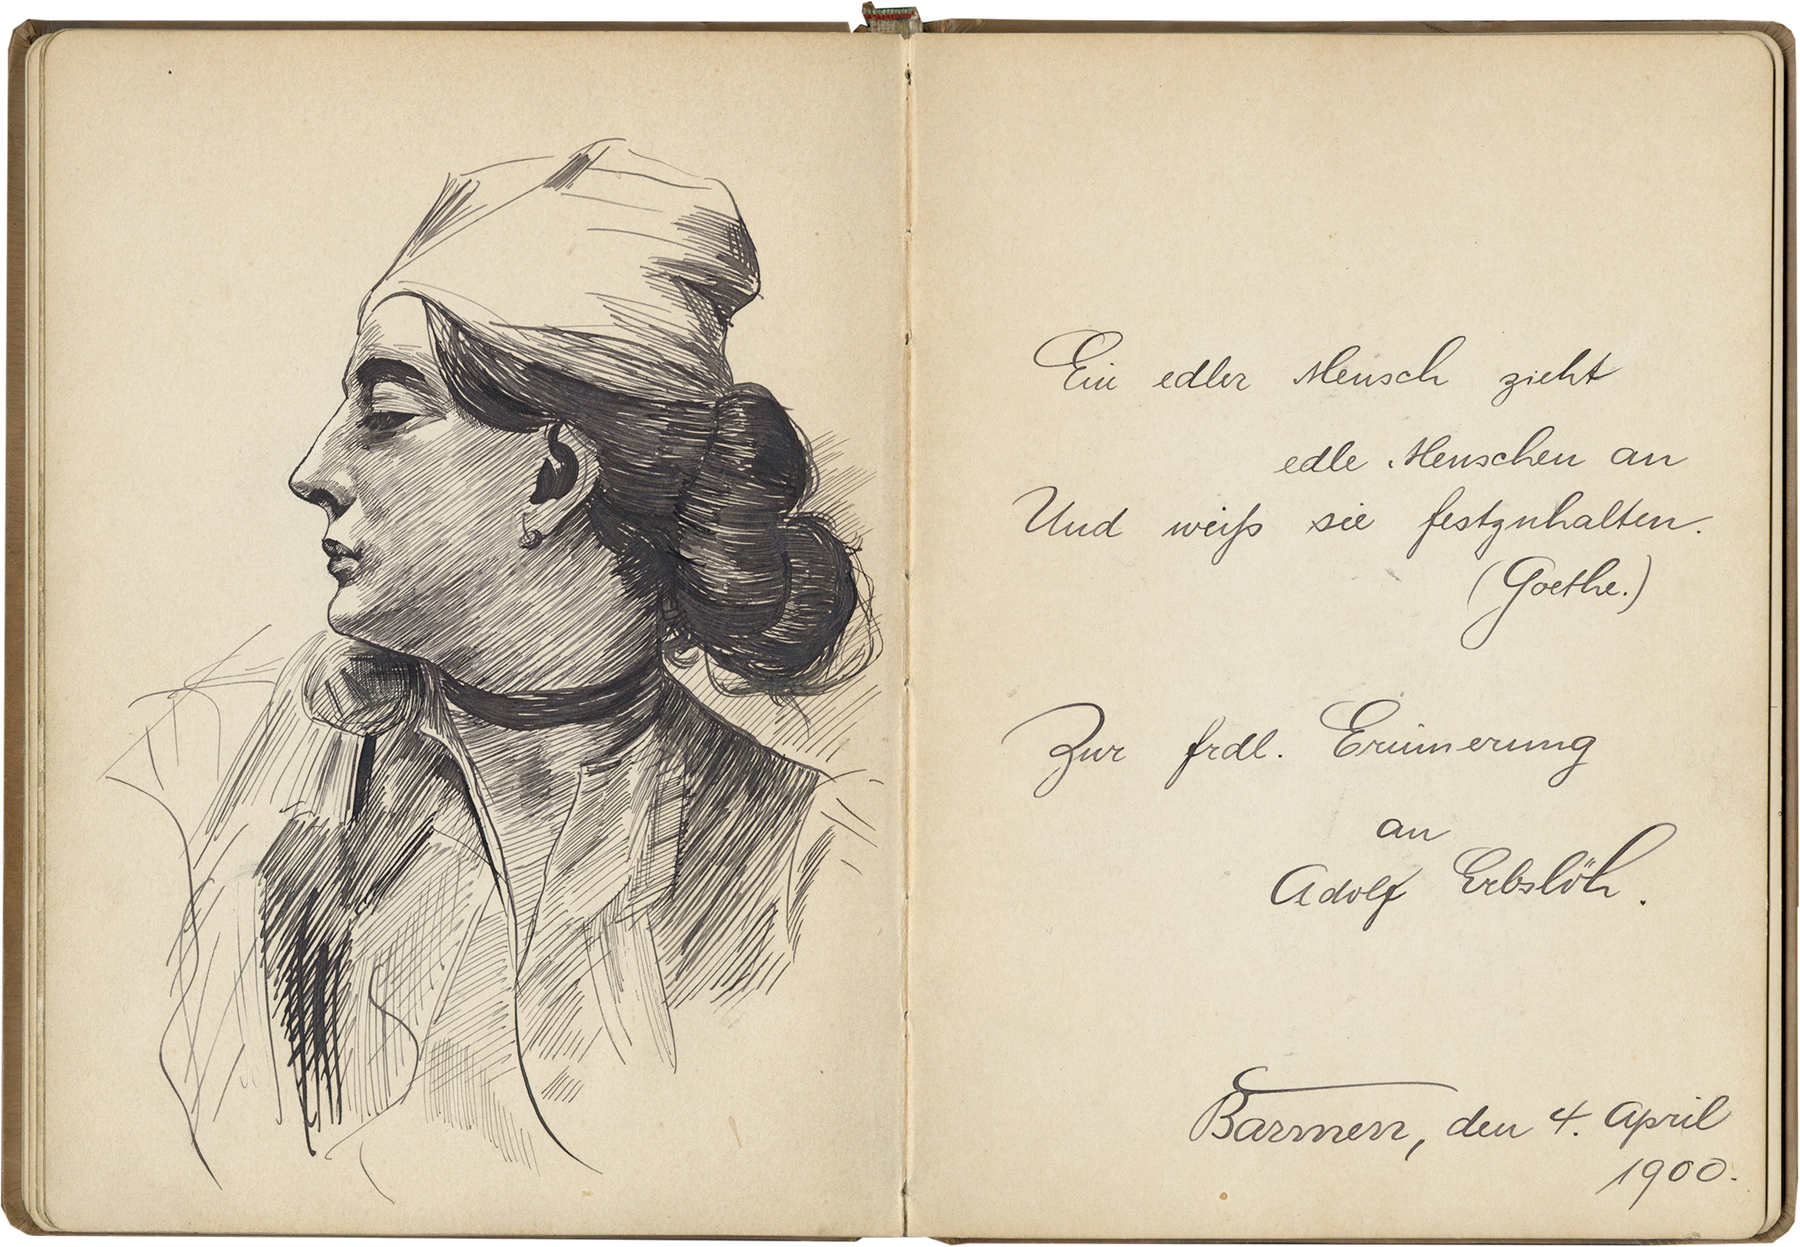 Ein edler Mensch zieht
edle Menschen an
Und weiß sie festzuhalten.
(Goethe.)
Zur frdl. Erinnerung
an
Adolf Erbslöh.
Barmen, den 4. April
1900.